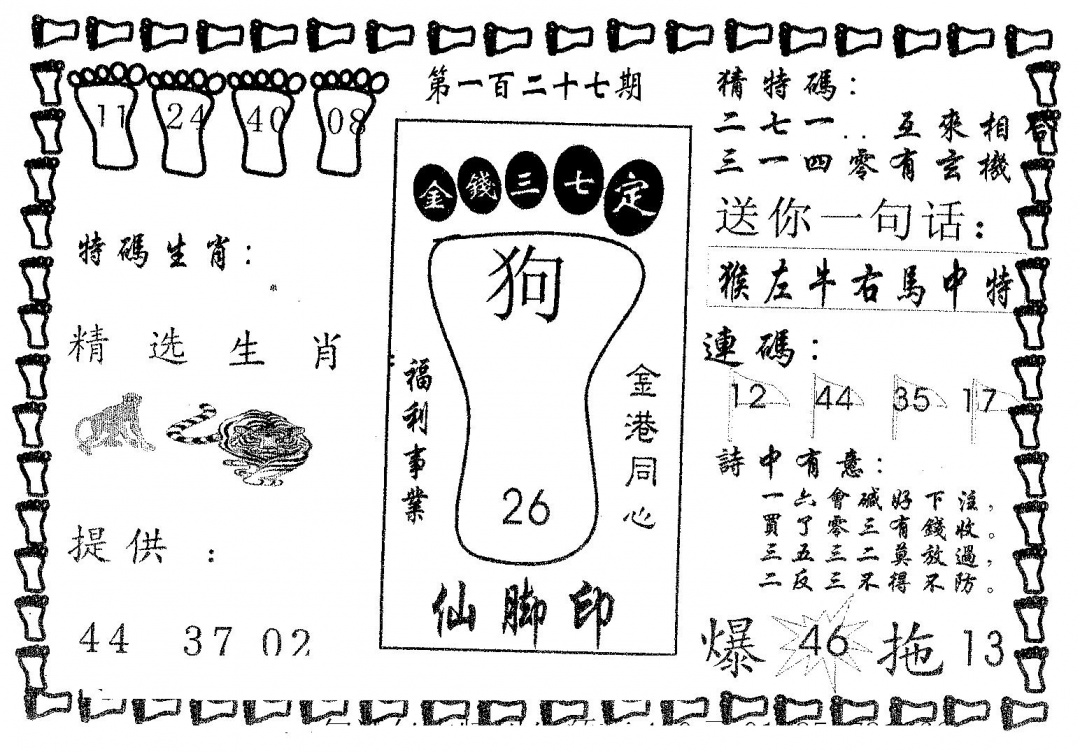 第一百二十七期
11 24 40 08
特碼生肖：
精选生肖
提供：
44 37 02
金錢三七定
狗
福利事業
金港同心
26
仙脚印
猜特碼：
二七一..互來相
三一四零有玄機
送你一句话：
猴左牛右馬中特
連碼：
12 44 35 17
詩中有意：
一六會碱好下注，
買了零三有錢收。
三五三二莫放過，
二反三不得不防。
爆 46 拖 13